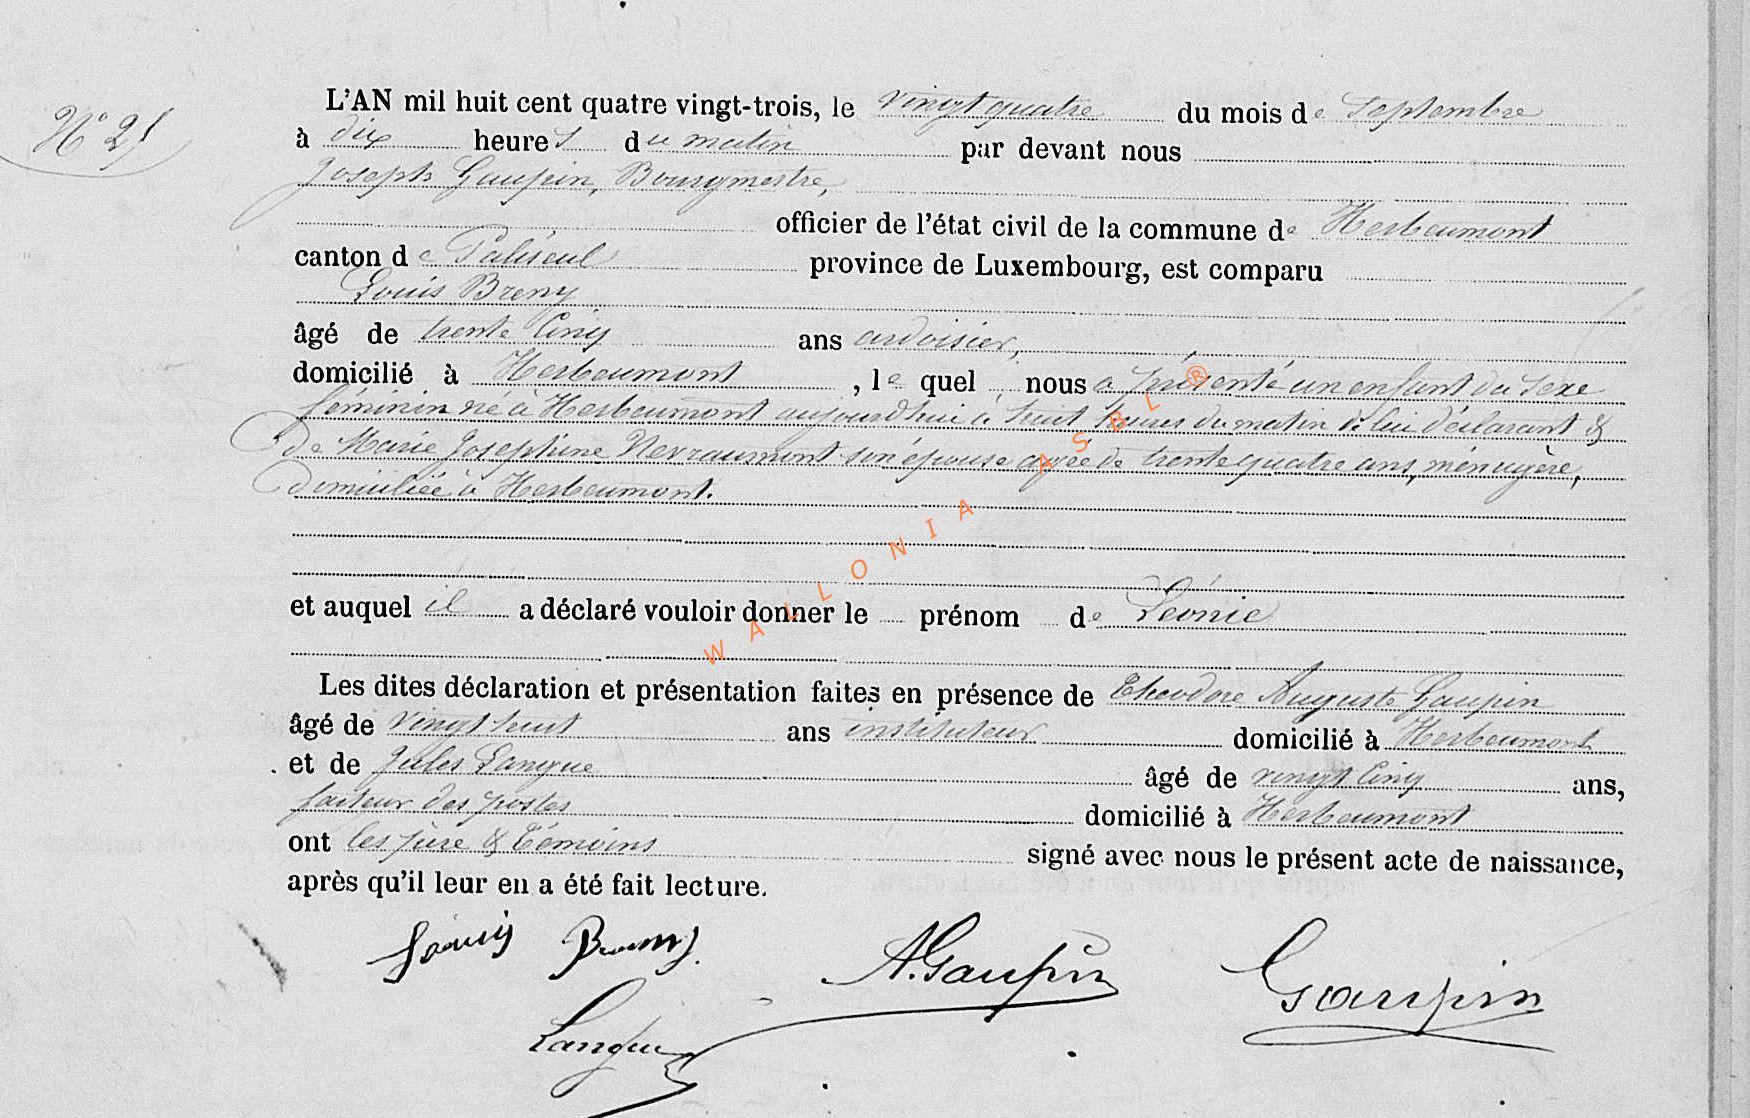 N° 21
L'AN mil huit cent quatre vingt-trois, le vingt quatre du mois de Septembre
à dix heures du matin par devant nous
Joseph Gaupin, Bourgmestre,
officier de l'état civil de la commune de Herbeumont
canton de Paliseul province de Luxembourg, est comparu
Louis Breny
âgé de trente cinq ans ardoisier,
domicilié à Herbeumont, lequel nous a présenté un enfant du sexe
féminin né à Herbeumont aujourd'hui à huit heures du matin de lui déclarant &
de Marie Josephine Nevraumont son épouse agée de trente quatre ans, ménagère,
domiciliée à Herbeumont.
et auquel il a déclaré vouloir donner le prénom de Léonie
Les dites déclaration et présentation faites en présence de Théodore Auguste Gaupin
âgé de vingt huit ans instituteur domicilié à Herbeumont
et de Jules Langue âgé de vingt cinq ans,
facteur des postes domicilié à Herbeumont
ont les père & témoins signé avec nous le présent acte de naissance,
après qu'il leur en a été fait lecture.
Louis Breny. A. Gaupin Gaupin
Langue
WALLONIA ASBL ®